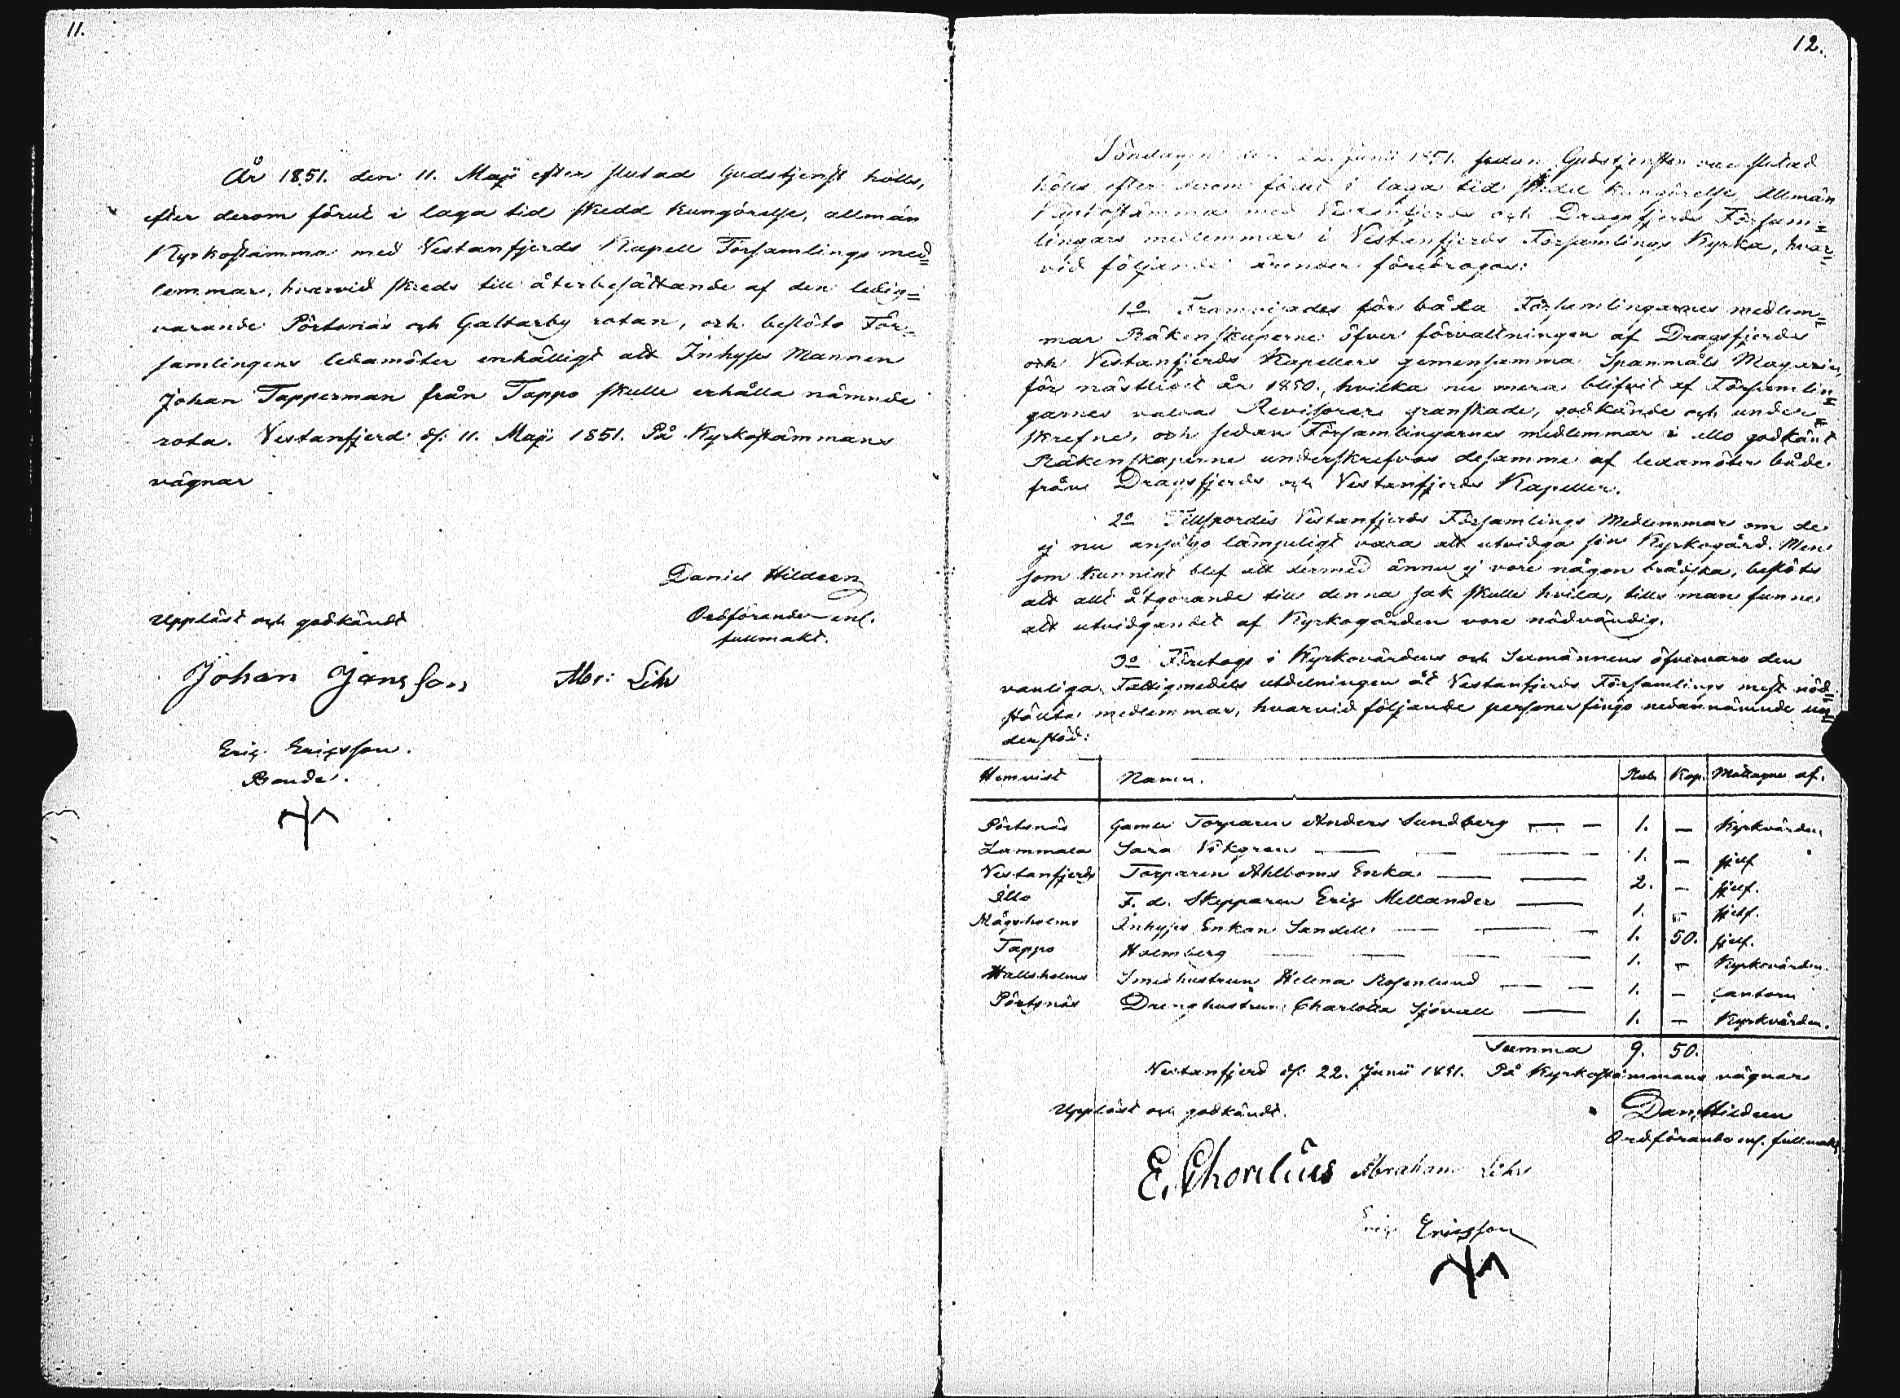 11.
År 1851. den 11. Maji efter slutad Gudstjenst hölls,
efter derom förut i laga tid skedd kungörelse, allmän
Kyrkostämma med Vestanfjerds Kapell Församlings med=
lemmar, hvarvid skreds till återbesättande af den ledig=
varande Pörtsnäs och Galtarby rotan, och beslöto För=
samlingens ledamöter enhälligt att Inhyses Mannen
Johan Tapperman från Tappo skulle erhålla nämnde
rota. Vestanfjerd d. 11. Maji 1851. På Kyrkostämmans
vägnar
Daniel Hildeen
Ordförande enl.
fullmakt.
Uppläst och godkändt
Johan Jansson Abr: Lihr
Eric Ericsson.
Bonde.
12.
Söndagen den 22. Junii 1851. sedan Gudstjensten var slutad
hölls efter derom förut i laga tid skedd kungörelse Allmän
Kyrkostämma med Vestanfjerds och Dragsfjerds Försam=
lingars medlemmar i Vestanfjerds Församlings Kyrka, hvar=
vid följande ärender föredrogos:
1o Framvisades för båda Församlingarnes medlem=
mar Räkenskaperne öfver förvaltningen af Dragsfjerds
och Vestanfjerds Kapellers gemensamma Spanmåls Magasin,
för nästlidit år 1850., hvilka nu mera blifvit af Församlin=
garnes valda Revisorer granskade, godkände och under=
skrefne, och sedan Församlingarnes medlemmar i allo godkänt
Räkenskaperne underskrefvos desamme af ledamöter både
från Dragsfjerds och Vestanfjerds Kapeller.
2o Tillspordes Vestanfjerds Församlings Medlemmar om de
ej nu ansågo lämpeligt vara att utvidga sin Kyrkogård. Men
som kunnigt blef att dermed ännu ej vore någon brådska, beslöts
att allt åtgörande till denna sak skulle hvila, tills man funne
att utvidgandet af Kyrkogården vore nödvändig.
3o Företogs i Kyrkovärdens och Sexmännens öfvervaro den
vanliga Fattigmedels utdelningen åt Vestanfjerds Församlings mest nöd=
stälta medlemmar, hvarvid följande personer fingo nedannämnde un=
derstöd:
Hemvist Namn. Rub. Kop. Mottagne af.
Pörtsnäs Gamla Torparen Anders Sundberg — — 1. — Kyrkvärden
Lammala Sara Vikgren — — — 1. — sjelf
Vestanfjerds Torparen Ahlboms Enka — — 2. — sjelf.
Illo F. d. Skepparen Eric Mellander — 1. — sjelf.
Mågsholms Inhyses Enkan Sandell — — — 1. 50. sjelf.
Tappo Holmberg — — — 1. — Kyrkovärden.
Hallsholms Smedhustrun Helena Rosenlund — — 1. — Cantorn
Pörtsnäs Drenghustrun Charlotta Sjövall — 1. — Kyrkvärden.
Summa 9. 50.
Vestanfjerd d. 22. Junii 1851. På Kyrkostämmans vägnar
Uppläst och godkändt.
Dan. Hildeen
Ordförande enl. fullmakt.
E. Chorelius Abraham Lihr
Eric Ericsson